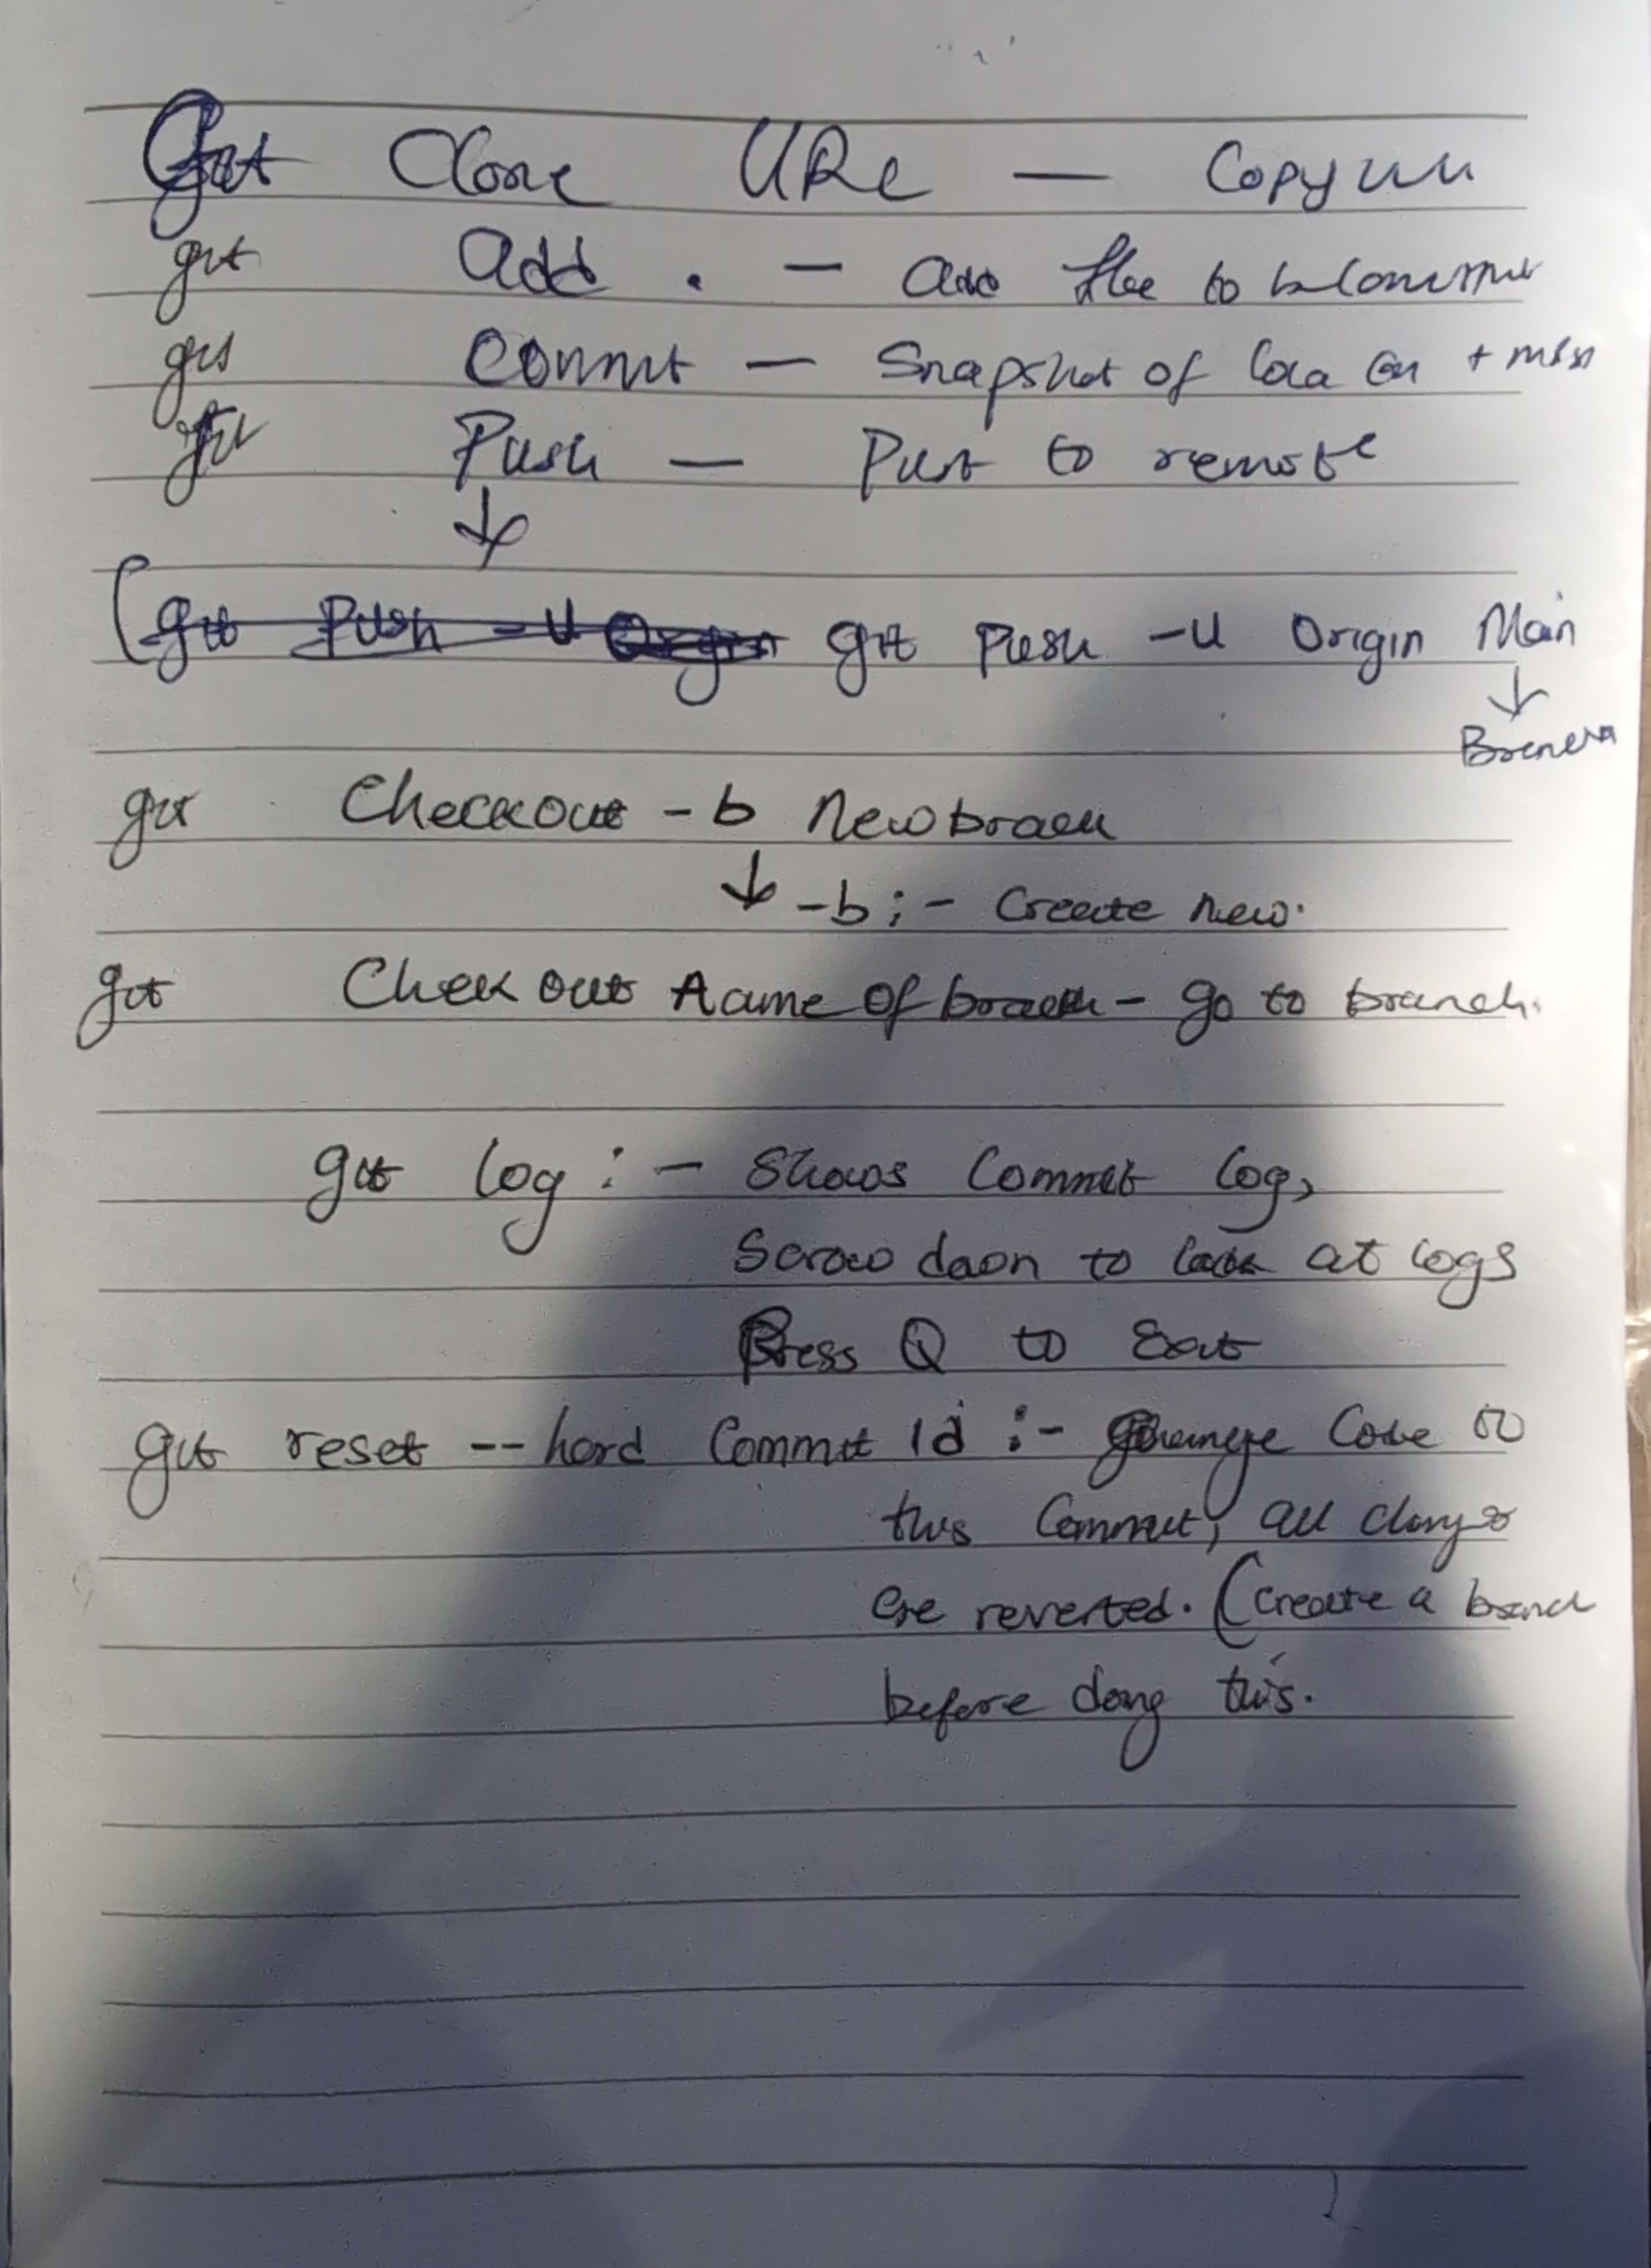 Git Clone URL — Copy
git add . — add file to
git Commit — Snapshot of + msn
git Push — Push to remote
↓
(git Push -u Origin git Push -u Origin Main
↓
Branch
git Checkout -b New branch
↓ -b :- Create new.
git Checkout name of branch - go to branch.
git log :- Shows Commit log,
Scrow down to look at logs
Press Q to Exit
git reset --hard Commit id :- Change Code to
this Commit, all changes
are reverted. (Create a branch
before doing this.